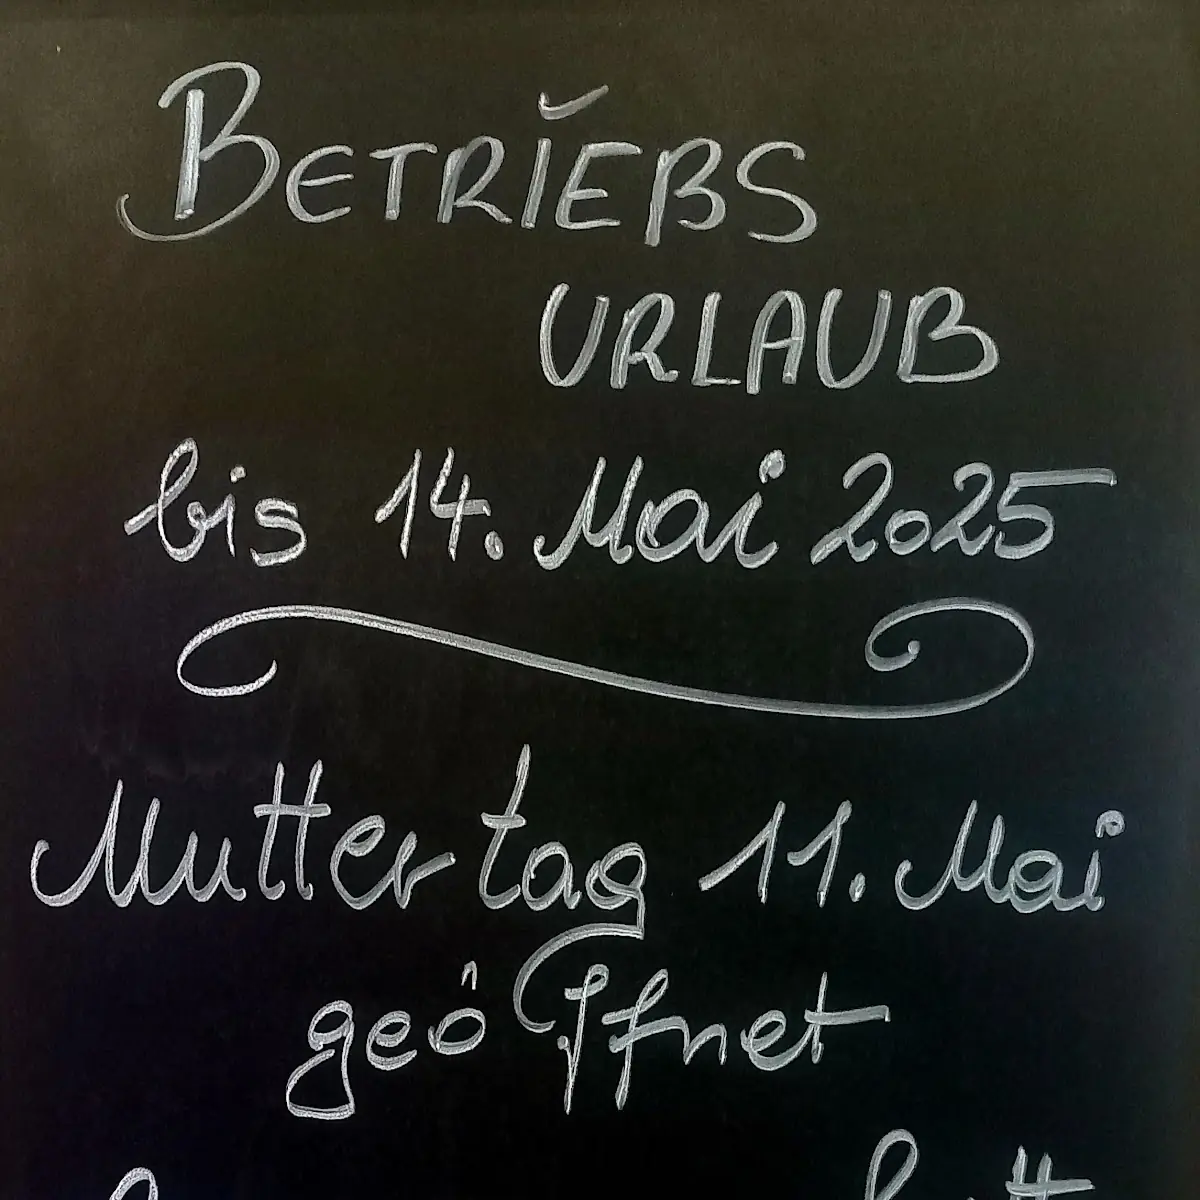 BETRIEBS
URLAUB
bis 14. Mai 2025
Muttertag 11. Mai
geöffnet